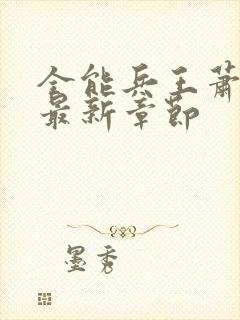 全能兵王萧
最新章节
墨秀